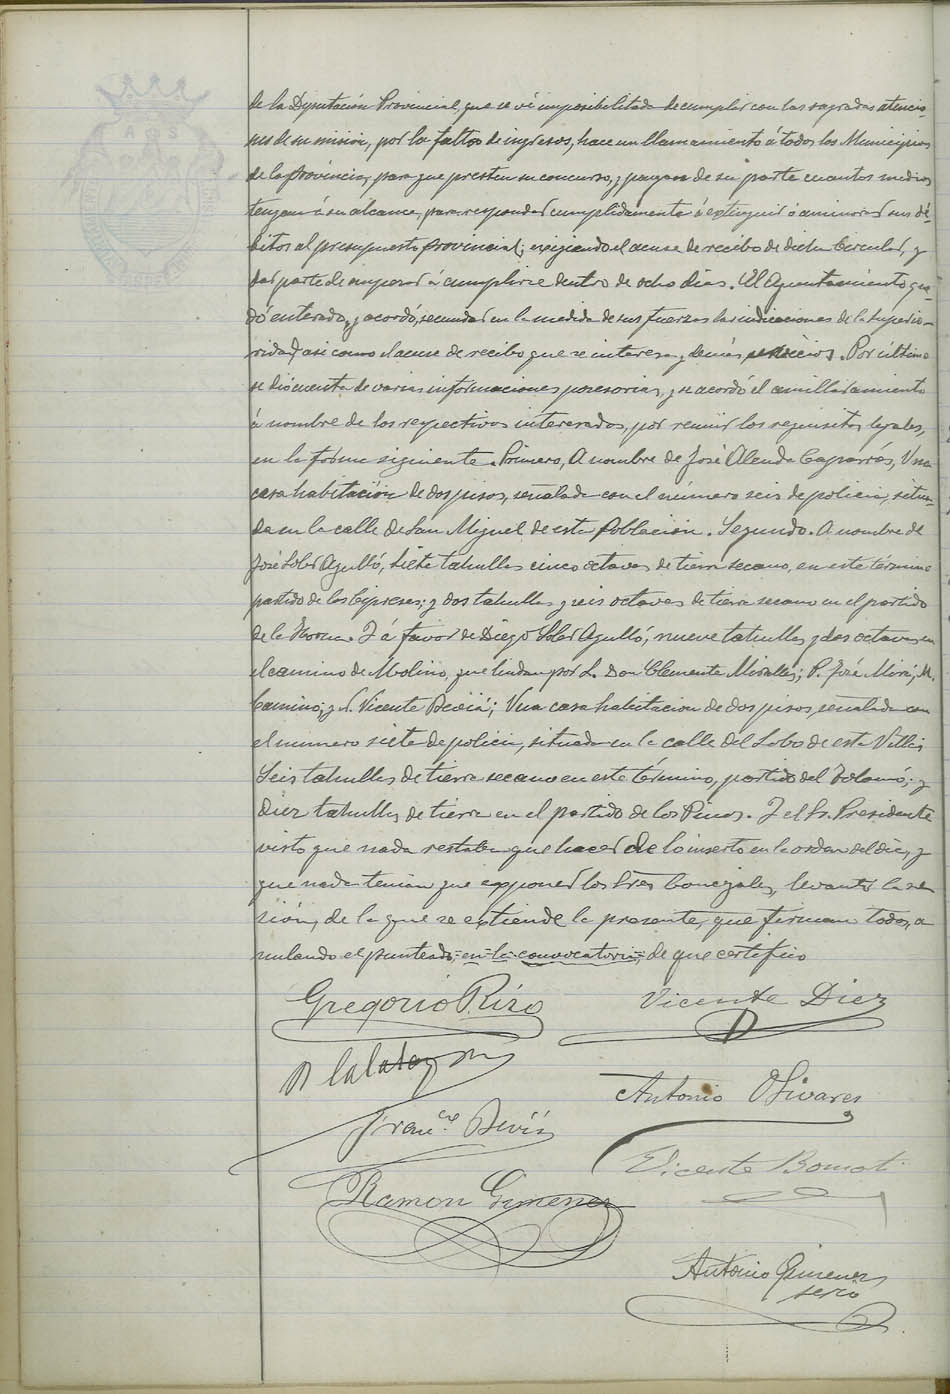 de la Diputación Provincial, que se vé imposibilitada de cumplir con las sagradas atencio-
nes de su misión, por la falta de ingresos, hace un llamamiento á todos los Municipios
de la Provincia, para que presten su concurso, y pongan de su parte cuantos medios
tengan á su alcance, para responder cumplidamente á extinguir ó aminorar sus dé-
bitos al presupuesto provincial; exigiendo el acuse de recibo de dicha Circular, y
dar parte de empezar á cumplirse dentro de ocho dias. El Ayuntamiento que-
dó enterado, y acordó, secundar en la medida de sus fuerzas las indicaciones de la Superio-
ridad, asi como el acuse de recibo que se interesa, y demás. Por último
se dió cuenta de varias informaciones posesorias, y se acordó el amillaramiento
á nombre de los respectivos interesados, por reunir los requisitos legales,
en la forma siguiente. Primero, A nombre de José Alenda Caparrós, Una
casa habitación de dos pisos, señalada con el número seis de policia, situa-
da en la calle de San Miguel de esta Poblacion. Segundo. A nombre de
José Soler Agulló, siete tahullas cinco octavas de tierra secano, en este término
partido de los Cipreses; y dos tahullas y seis octavas de tierra secano en el partido
de la Horna. Y á favor de Diego Soler Agulló, nueve tahullas y dos octavas en
el camino de Molino, que lindan por L. Don Clemente Miralles; P. José Mira; M.
Camino; y N. Vicente Beviá; Una casa habitacion de dos pisos, señalada con
el número siete de policia, situada en la calle del Lobo de esta Villa;
Seis tahullas de tierra secano en este término, partido del; y
Diez tahullas de tierra en el partido de los Pinos. Y el Sr. Presidente
visto que nada restaba que hacer de lo inserto en la orden del dia, y
que nada tenian que exponer los Sres Concejales, levantó la se-
sión, de la que se extiende la presente, que firman todos, a-
nulando el punteado, =en la convocatoria=, de que certifico
Gregorio Rizo
Vicente Diez
A Calatayud
Antonio Olivares
Franco. Beviá
Vicente Bomati
Ramon Gimenez
Antonio Gimenez
serio